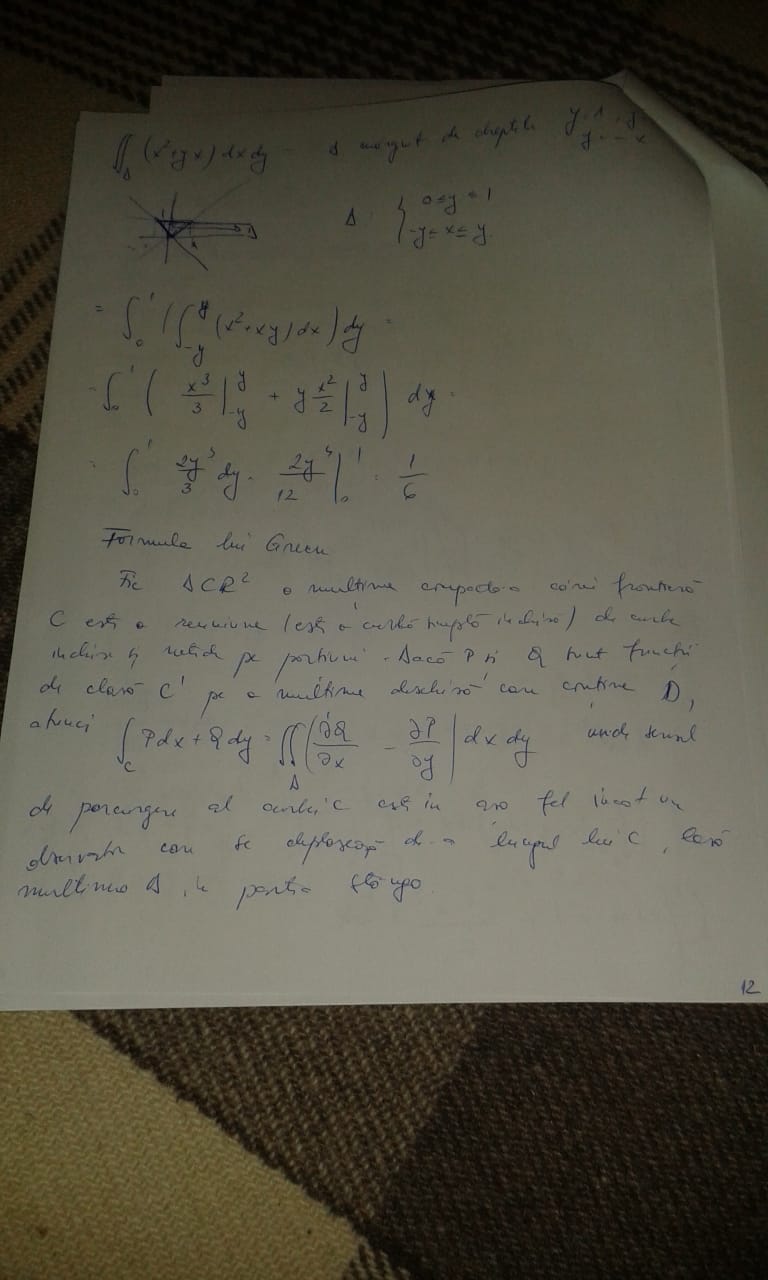 ∬_Δ (x²+yx) dxdy – Δ mărginit de dreptele y=1, y
y=-x
Δ { 0≤y≤1
-y≤x≤y
= ∫₀¹ (∫_{-y}^{y} (x²+xy) dx) dy =
= ∫₀¹ ( x³/3 |_{-y}^{y} + y x²/2 |_{-y}^{y} ) dy =
= ∫₀¹ 2y³/3 dy = 2y⁴/12 |₀¹ = 1/6
Formula lui Green
Fie Δ⊂R² o multime compactă a cărei frontieră
C este o reuniune (este o curbă simplă inchisă) de curbe
inchise și netede pe portiuni. Dacă P și Q sunt functii
de clasă C¹ pe o multime deschisă care contine D,
atunci ∫_C Pdx + Qdy = ∬_Δ (∂Q/∂x – ∂P/∂y) dxdy unde sensul
de parcurgere al curbei C este in asa fel incat un
observator care se deplasează de-a lungul lui C, lasă
multimea Δ in partea stângă.
12